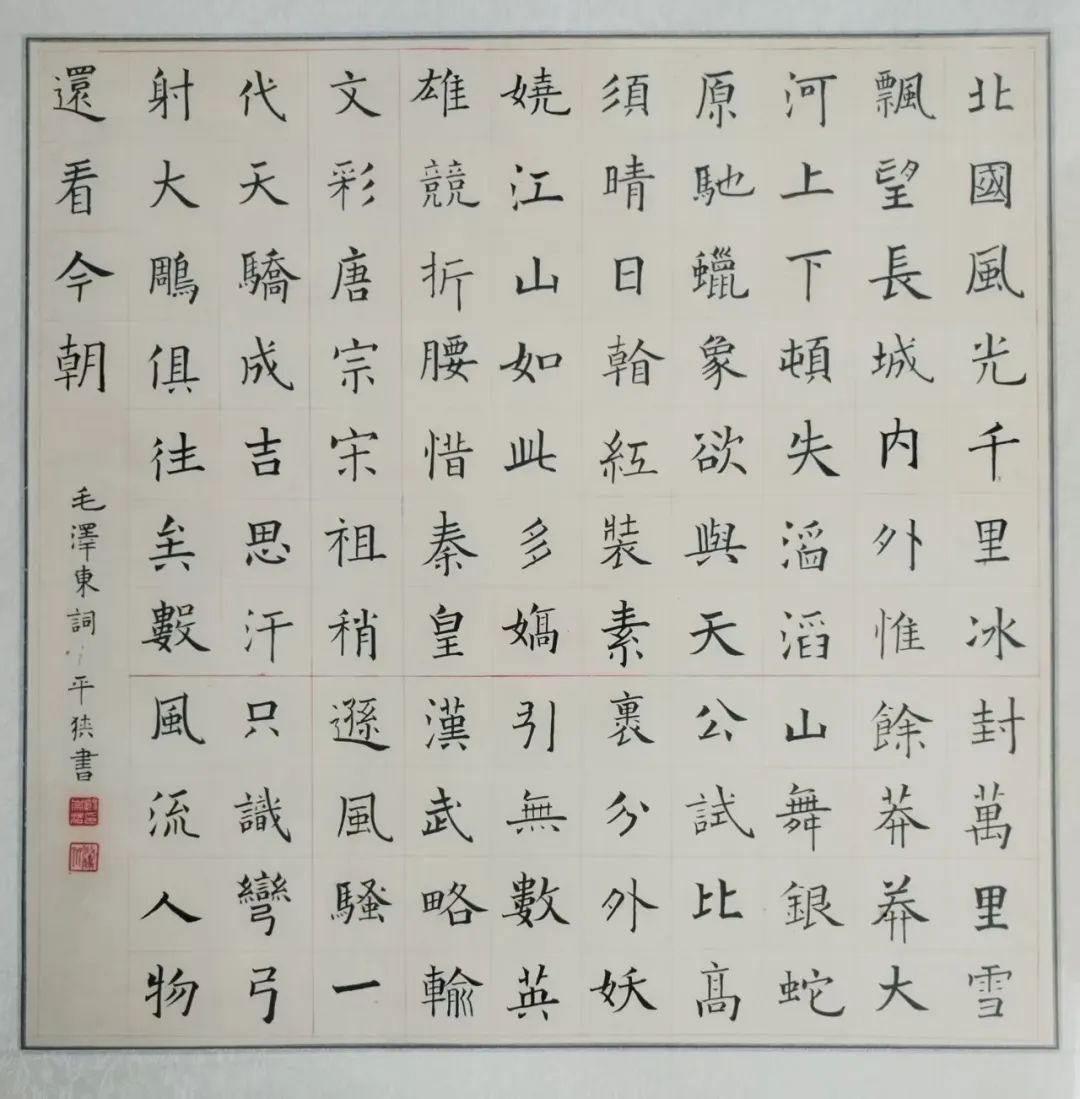 北國風光千里冰封萬里雪
飄望長城内外惟餘莽莽大
河上下頓失滔滔山舞銀蛇
原馳蠟象欲與天公試比髙
須晴日看紅裝素裹分外妖
嬈江山如此多嬌引無數英
雄競折腰惜秦皇漢武略輸
文彩唐宗宋祖稍遜風騷一
代天驕成吉思汗只識彎弓
射大鵰俱往矣數風流人物
還看今朝
毛澤東詞 平書